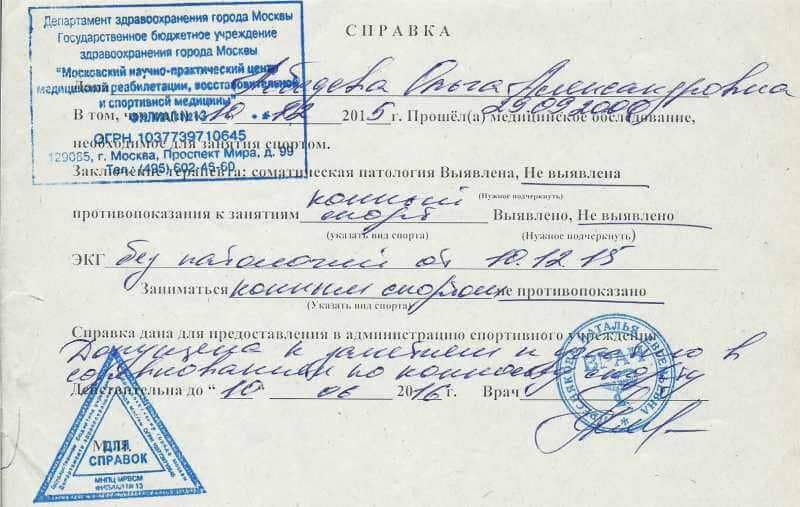 Департамент здравоохранения города Москвы
Государственное бюджетное учреждение
здравоохранения города Москвы
"Московский научно-практический центр
медицинской реабилитации, восстановительной
и спортивной медицины"
ФИЛИАЛ № 13
ОГРН 1037739710645
129085, г. Москва, Проспект Мира, д. 99
Тел. (495) 602-45-60
СПРАВКА
Ольга Александровна
29.09.2000
В том, что 10 12 2015 г. Прошёл(а) медицинское обследование,
необходимое для занятия спортом.
Заключение терапевта: соматическая патология Выявлена, Не выявлена
(Нужное подчеркнуть)
противопоказания к занятиям конный спорт Выявлено, Не выявлено
(указать вид спорта) (Нужное подчеркнуть)
ЭКГ без патологий от 10.12.15
Заниматься конным спортом не противопоказано
(Указать вид спорта)
Справка дана для предоставления в администрацию спортивного учреждения
Допущена к занятиям и участию в
соревнованиях по конному спорту
Действительна до "10" 06 2016 г. Врач
НАТАЛЬЯ
ВРАЧ
М.П.
ДЛЯ
СПРАВОК
МНПЦ МРВСМ
ФИЛИАЛ № 13